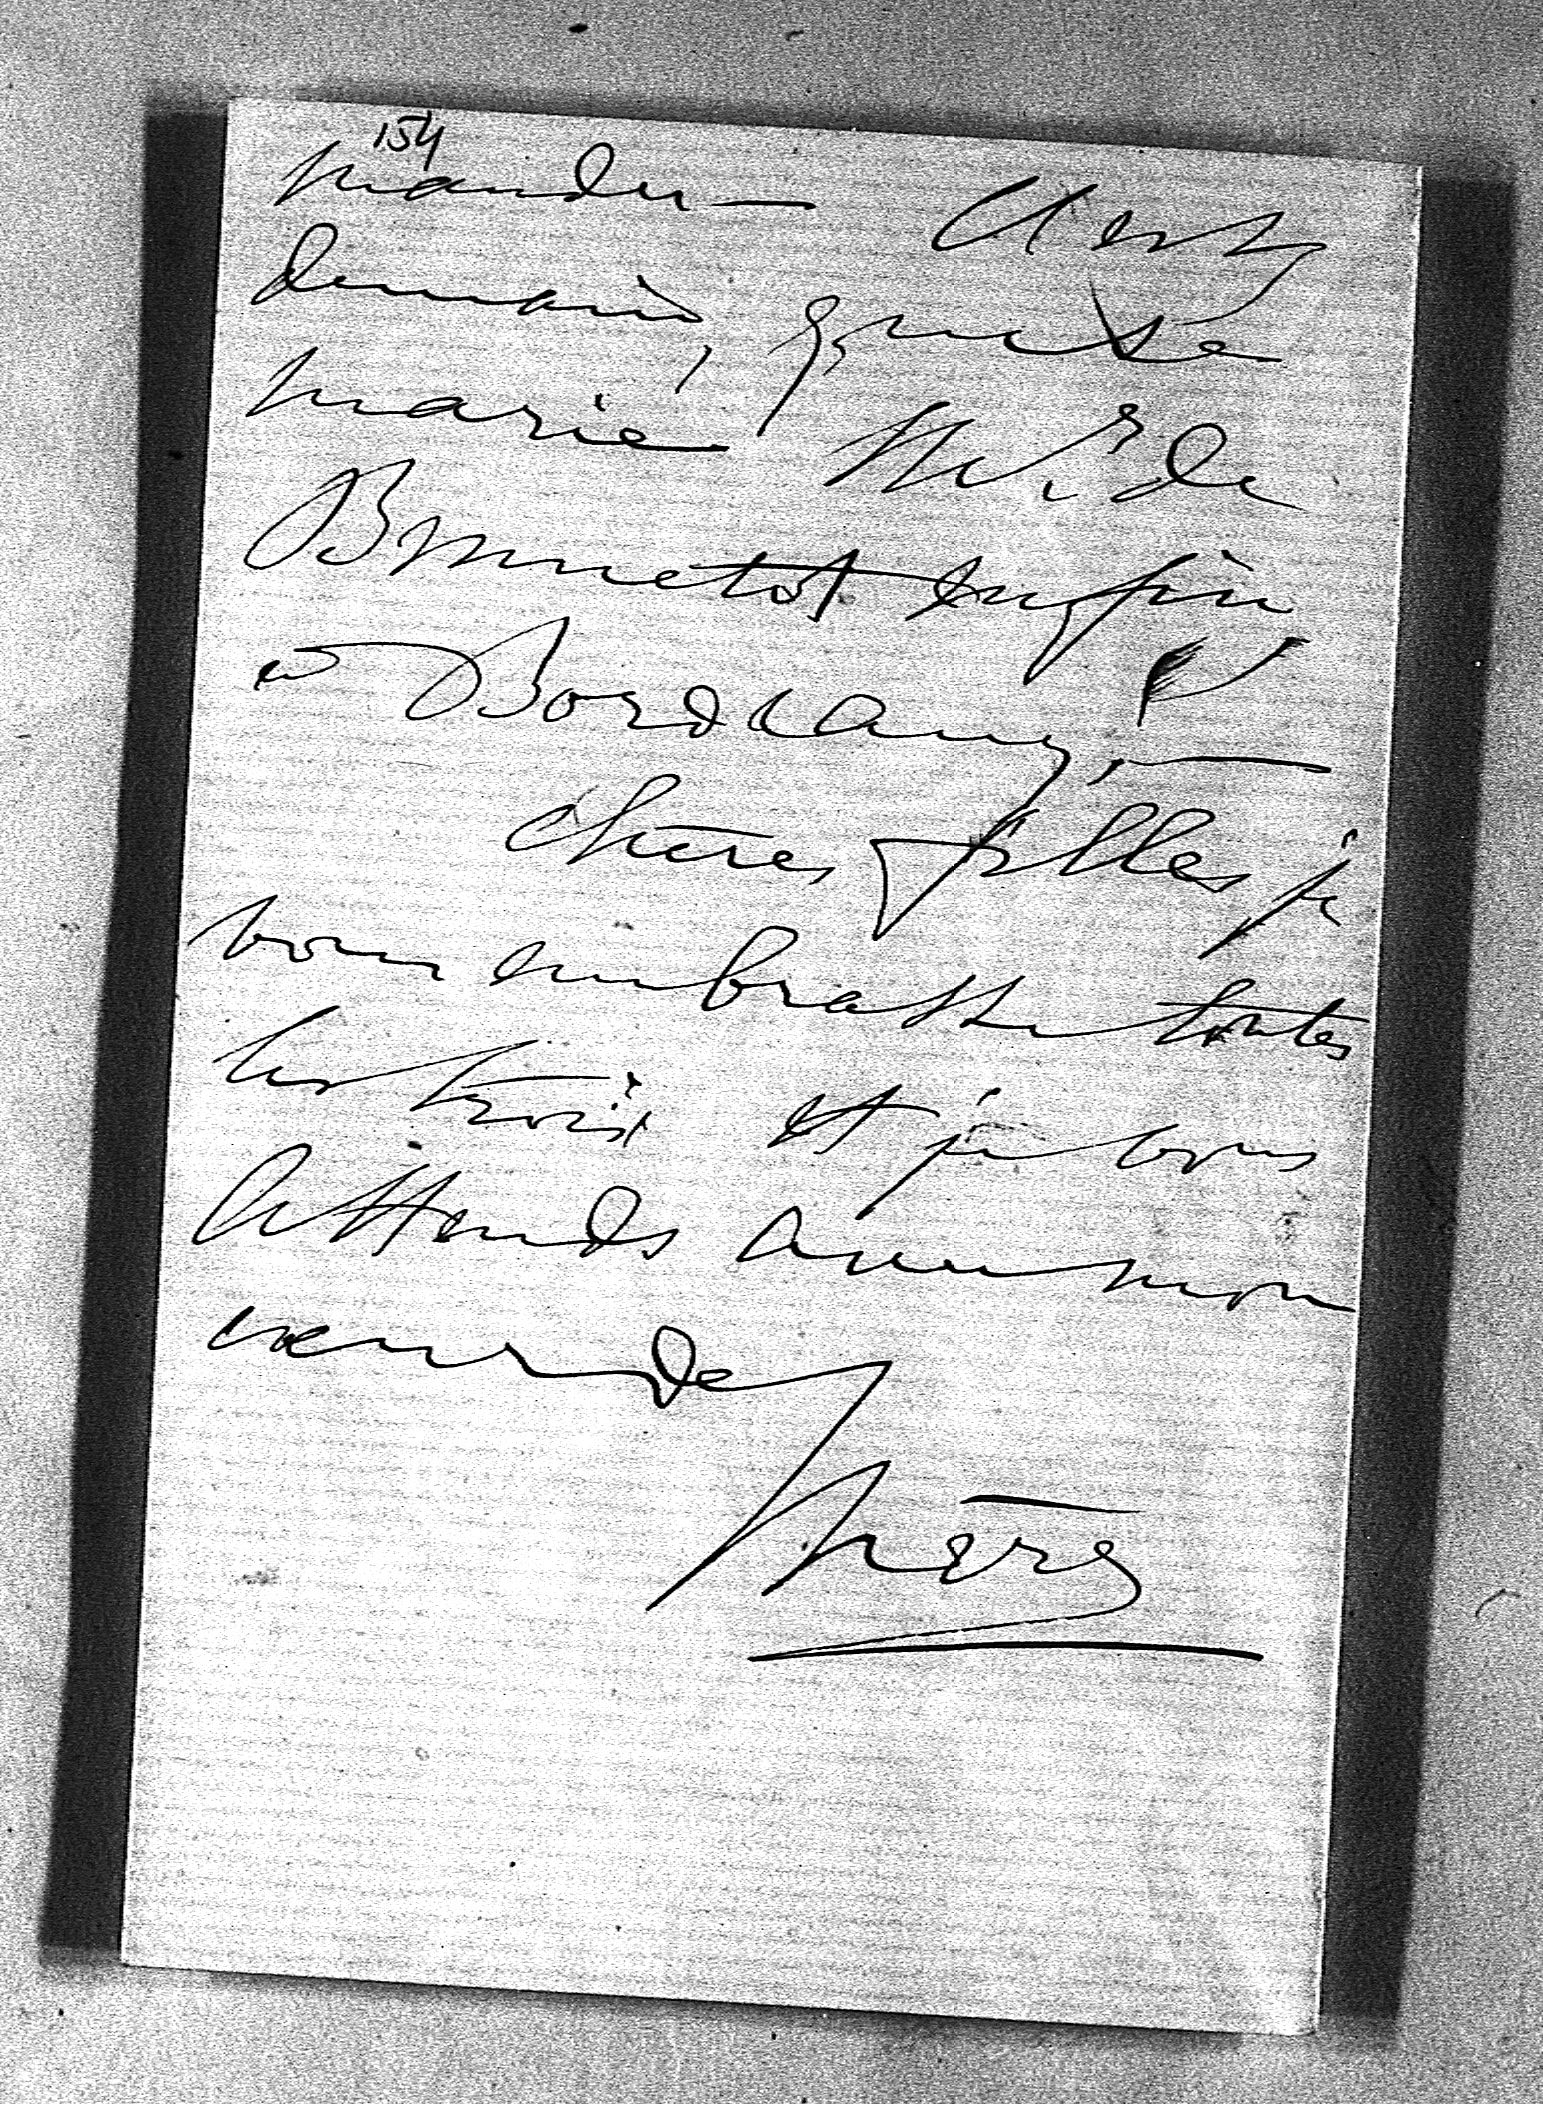 154
mander — C'est
demain, que se
marie Mr de
Brunetot enfin
à Bordeaux, —
chères filles je
vous embrasse toutes
les trois et je vous
attends avec mon
cœur de
mère